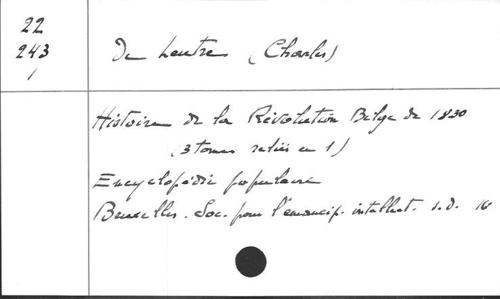 22
243
1
De Leutre (Charles)
Histoire de la Révolution Belge de 1830
(3 tomes reliés en 1)
Encyclopédie populaire
Bruxelles. Soc. pour l'émancip. intellect. s.d. 16